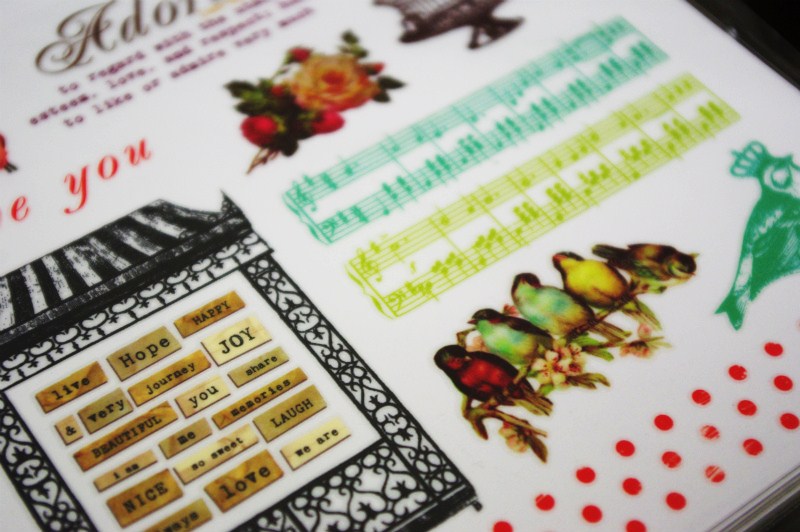 Ador
to regard with the
esteem, love, and respect,
to like or admire very much
you
live
Hope
HAPPY
&
very
journey
JOY
BEAUTIFUL
you
share
i am
me
memories
NICE
so sweet
LAUGH
love
we are